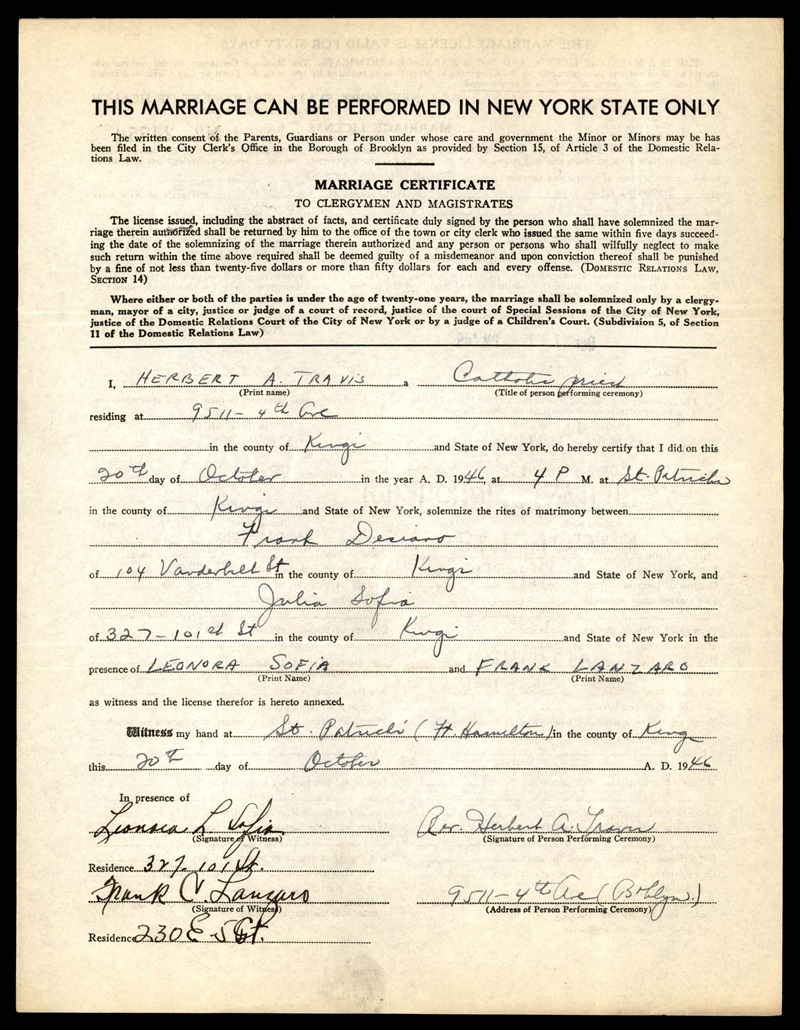 THIS MARRIAGE CAN BE PERFORMED IN NEW YORK STATE ONLY
The written consent of the Parents, Guardians or Person under whose care and government the Minor or Minors may be has
been filed in the City Clerk's Office in the Borough of Brooklyn as provided by Section 15, of Article 3 of the Domestic Rela-
tions Law.
MARRIAGE CERTIFICATE
TO CLERGYMEN AND MAGISTRATES
The license issued, including the abstract of facts, and certificate duly signed by the person who shall have solemnized the mar-
riage therein authorized shall be returned by him to the office of the town or city clerk who issued the same within five days succeed-
ing the date of the solemnizing of the marriage therein authorized and any person or persons who shall wilfully neglect to make
such return within the time above required shall be deemed guilty of a misdemeanor and upon conviction thereof shall be punished
by a fine of not less than twenty-five dollars or more than fifty dollars for each and every offense. (DOMESTIC RELATIONS LAW,
SECTION 14)
Where either or both of the parties is under the age of twenty-one years, the marriage shall be solemnized only by a clergy-
man, mayor of a city, justice or judge of a court of record, justice of the court of Special Sessions of the City of New York,
justice of the Domestic Relations Court of the City of New York or by a judge of a Children's Court. (Subdivision 5, of Section
11 of the Domestic Relations Law)
I, HERBERT A. TRAVIS a Catholic priest
(Print name) (Title of person performing ceremony)
residing at 9511-4th Ave
in the county of Kings and State of New York, do hereby certify that I did on this
20th day of October in the year A. D. 1946, at 4 P M. at St. Patricks
in the county of Kings and State of New York, solemnize the rites of matrimony between
Frank Desiano
of 104 Vanderbilt St in the county of Kings and State of New York, and
Julia Sofia
of 327-101st St in the county of Kings and State of New York in the
presence of LEONORA SOFIA and FRANK LANZARO
(Print Name) (Print Name)
as witness and the license therefor is hereto annexed.
Witness my hand at St. Patricks (Ft. Hamilton) in the county of Kings
this 20th day of October A. D. 1946
In presence of
Leonora L. Sofia Rev. Herbert A. Travis
(Signature of Witness) (Signature of Person Performing Ceremony)
Residence 327-101 St.
Frank C. Lanzaro 9511-4th Ave (Bklyn.)
(Signature of Witness) (Address of Person Performing Ceremony)
Residence 230 E 5 St.